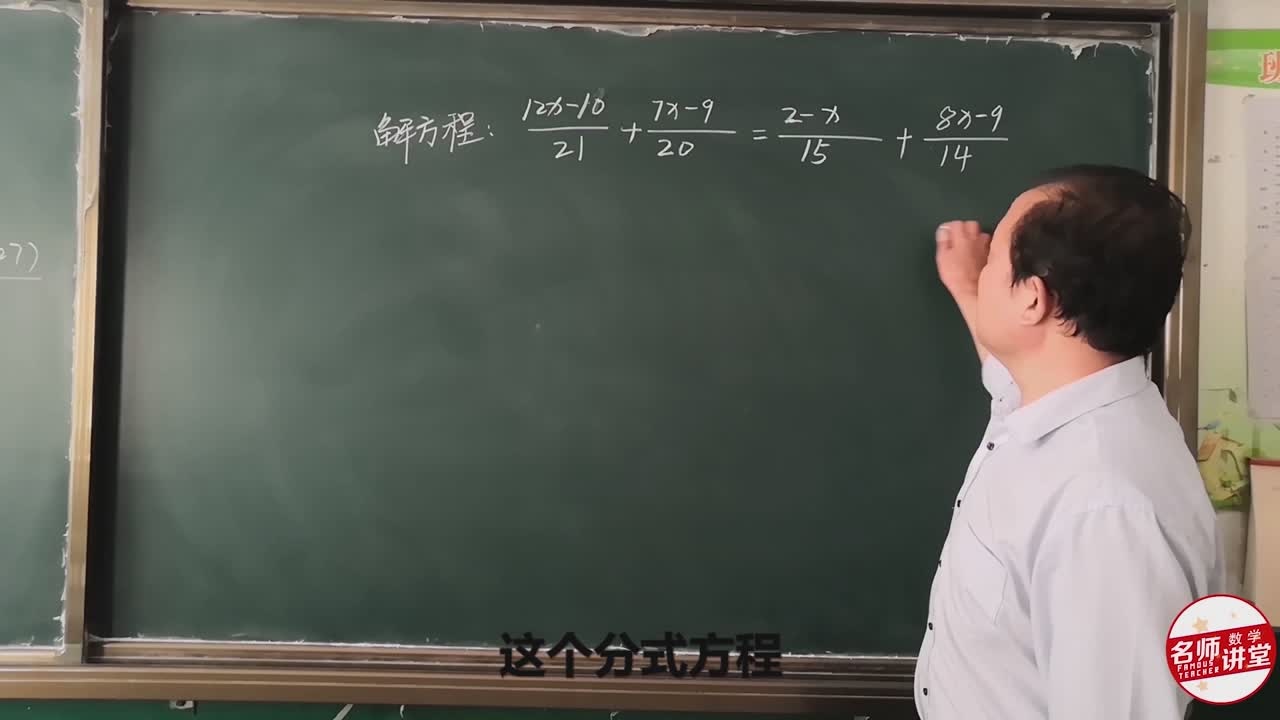 班
解方程: \frac{12x-10}{21} + \frac{7x-9}{20} = \frac{2-x}{15} + \frac{8x-9}{14}
27)
这个分式方程
名师 数学
讲堂
FAMOUS
TEACHER